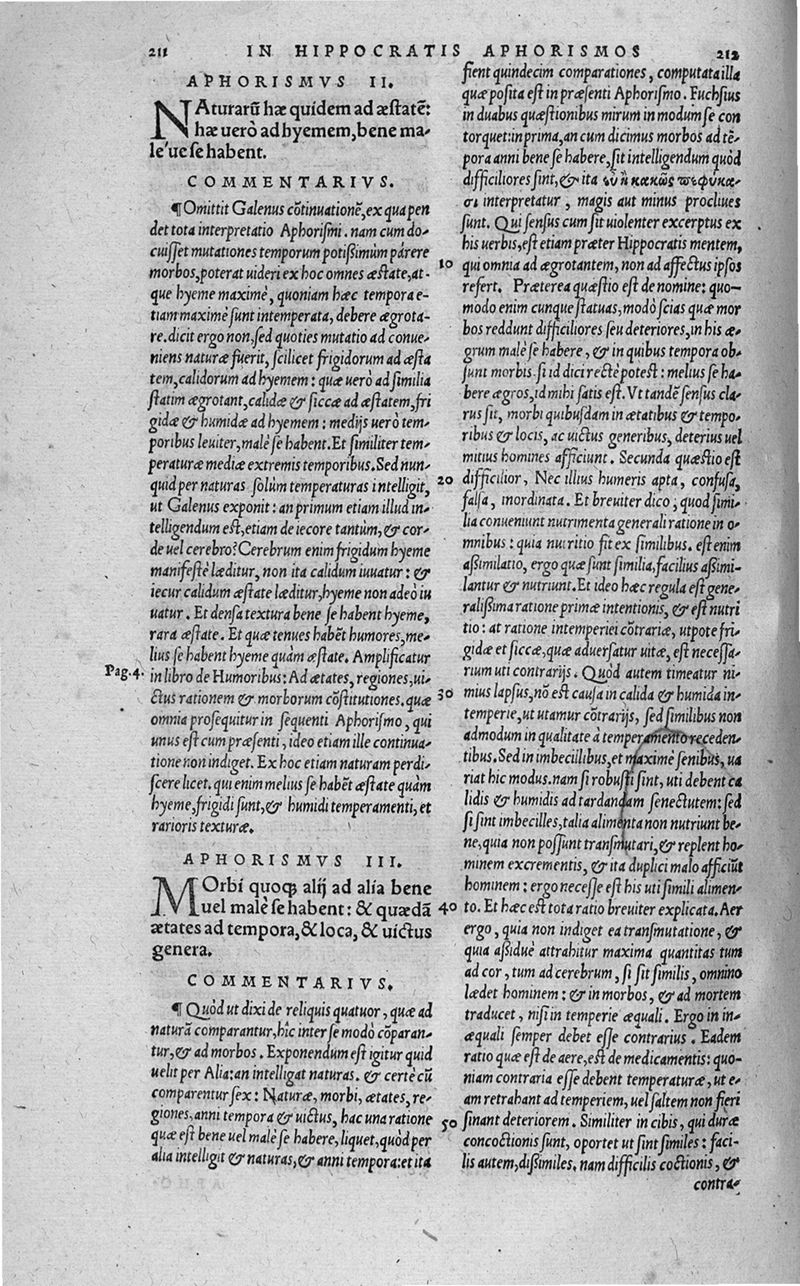 211 IN HIPPOCRATIS APHORISMOS 212
APHORISMVS II.
NAturarũ hæ quidem ad æstatẽ:
hæ uerò ad hyemem, bene ma-
le'ue se habent.
COMMENTARIVS.
¶Omittit Galenus cõtinuationẽ, ex qua pen
det tota interpretatio Aphorismi. nam cum do-
cuisset mutationes temporum potissimùm párere
morbos, poterat uideri ex hoc omnes æstate, at-
que hyeme maximè, quoniam hæc tempora e-
tiam maximè sunt intemperata, debere ægrota-
re. dicit ergo non, sed quoties mutatio ad conue-
niens naturæ fuerit, scilicet frigidorum ad æsta
tem, calidorum ad hyemem: quæ uerò ad similia
statim ægrotant, calidæ & siccæ ad æstatem, fri
gidæ & humidæ ad hyemem: medijs uerò tem-
poribus leuiter, malè se habent. Et similiter tem-
peraturæ mediæ extremis temporibus. Sed nun-
quid per naturas solùm temperaturas intelligit,
ut Galenus exponit: an primum etiam illud in-
telligendum est, etiam de iecore tantùm, & cor-
de uel cerebro? Cerebrum enim frigidum hyeme
manifestè læditur, non ita calidum iuuatur: &
iecur calidum æstate læditur, hyeme non adeò iu
uatur. Et densa textura bene se habent hyeme,
rara æstate. Et quæ tenues habẽt humores, me-
lius se habent hyeme quàm æstate. Amplificatur
Pag. 4. in libro de Humoribus: Ad ætates, regiones, ui-
ctus rationem & morborum cõstitutiones. quæ
omnia prosequitur in sequenti Aphorismo, qui
unus est cum præsenti, ideo etiam ille continua-
tione non indiget. Ex hoc etiam naturam perdi-
scere licet. qui enim melius se habẽt æstate quàm
hyeme, frigidi sunt, & humidi temperamenti, et
rarioris texturæ.
APHORISMVS III.
MOrbi quoq; alij ad alia bene
uel malè se habent: & quædã
ætates ad tempora, & loca, & uictus
genera.
COMMENTARIVS.
¶ Quòd ut dixi de reliquis quatuor, quæ ad
naturã comparantur, hîc inter se modò cõparan-
tur, & ad morbos. Exponendum est igitur quid
uelit per Alia: an intelligat naturas. & certè cũ
comparentur sex: Naturæ, morbi, ætates, re-
giones, anni tempora & uictus, hac una ratione
quæ est bene uel malè se habere, liquet, quòd per
alia intelligit & naturas, & anni tempora: et ita
fient quindecim comparationes, computata illa
quæ posita est in præsenti Aphorismo. Fuchsius
in duabus quæstionibus mirum in modum se con
torquet: in prima, an cum dicimus morbos ad tẽ-
pora anni bene se habere, sit intelligendum quòd
difficiliores sint, & ita εὖ ἢ κακῶς πεφύκα-
σι interpretatur, magis aut minus procliues
sunt. Qui sensus cum sit uiolenter excerptus ex
his uerbis, est etiam præter Hippocratis mentem,
10 qui omnia ad ægrotantem, non ad affectus ipsos
refert. Præterea quæstio est de nomine: quo-
modo enim cunque statuas, modò scias quæ mor
bos reddunt difficiliores seu deteriores, in his æ-
grum malè se habere, & in quibus tempora ob-
sunt morbis. si id dici rectè potest: melius se ha-
bere ægros, id mihi satis est. Vt tandẽ sensus cla-
rus sit, morbi quibusdam in ætatibus & tempo-
ribus & locis, ac uictus generibus, deterius uel
mitius homines afficiunt. Secunda quæstio est
20 difficilior, Nec illius humeris apta, confusa,
falsa, inordinata. Et breuiter dico, quod simi-
lia conueniunt nutrimenta generali ratione in o-
mnibus: quia nutritio fit ex similibus. est enim
assimilatio, ergo quæ sunt similia, facilius assimi-
lantur & nutriunt. Et ideo hæc regula est gene-
ralissima ratione primæ intentionis, & est nutri
tio: at ratione intemperiei cõtrariæ, utpote fri-
gidæ et siccæ, quæ aduersatur uitæ, est necessa-
rium uti contrarijs. Quòd autem timeatur ni-
30 mius lapsus, nõ est causa in calida & humida in-
temperie, ut utamur cõtrarijs, sed similibus non
admodum in qualitate à temperamento receden-
tibus. Sed in imbecillibus, et maximè senibus, ua
riat hic modus. nam si robusti sint, uti debent ca
lidis & humidis ad tardandam senectutem: sed
si sint imbecilles, talia alimenta non nutriunt be-
ne, quia non possunt transmutari, & replent ho-
minem excrementis, & ita duplici malo afficiũt
hominem: ergo necesse est his uti simili alimen-
40 to. Et hæc est tota ratio breuiter explicata. Aer
ergo, quia non indiget ea transmutatione, &
quia assiduè attrahitur maxima quantitas tum
ad cor, tum ad cerebrum, si sit similis, omnino
lædet hominem: & in morbos, & ad mortem
traducet, nisi in temperie æquali. Ergo in in-
æquali semper debet esse contrarius. Eadem
ratio quæ est de aere, est de medicamentis: quo-
niam contraria esse debent temperaturæ, ut e-
am retrahant ad temperiem, uel saltem non fieri
50 sinant deteriorem. Similiter in cibis, qui duræ
concoctionis sunt, oportet ut sint similes: faci-
lis autem, dissimiles. nam difficilis coctionis, &
contra-